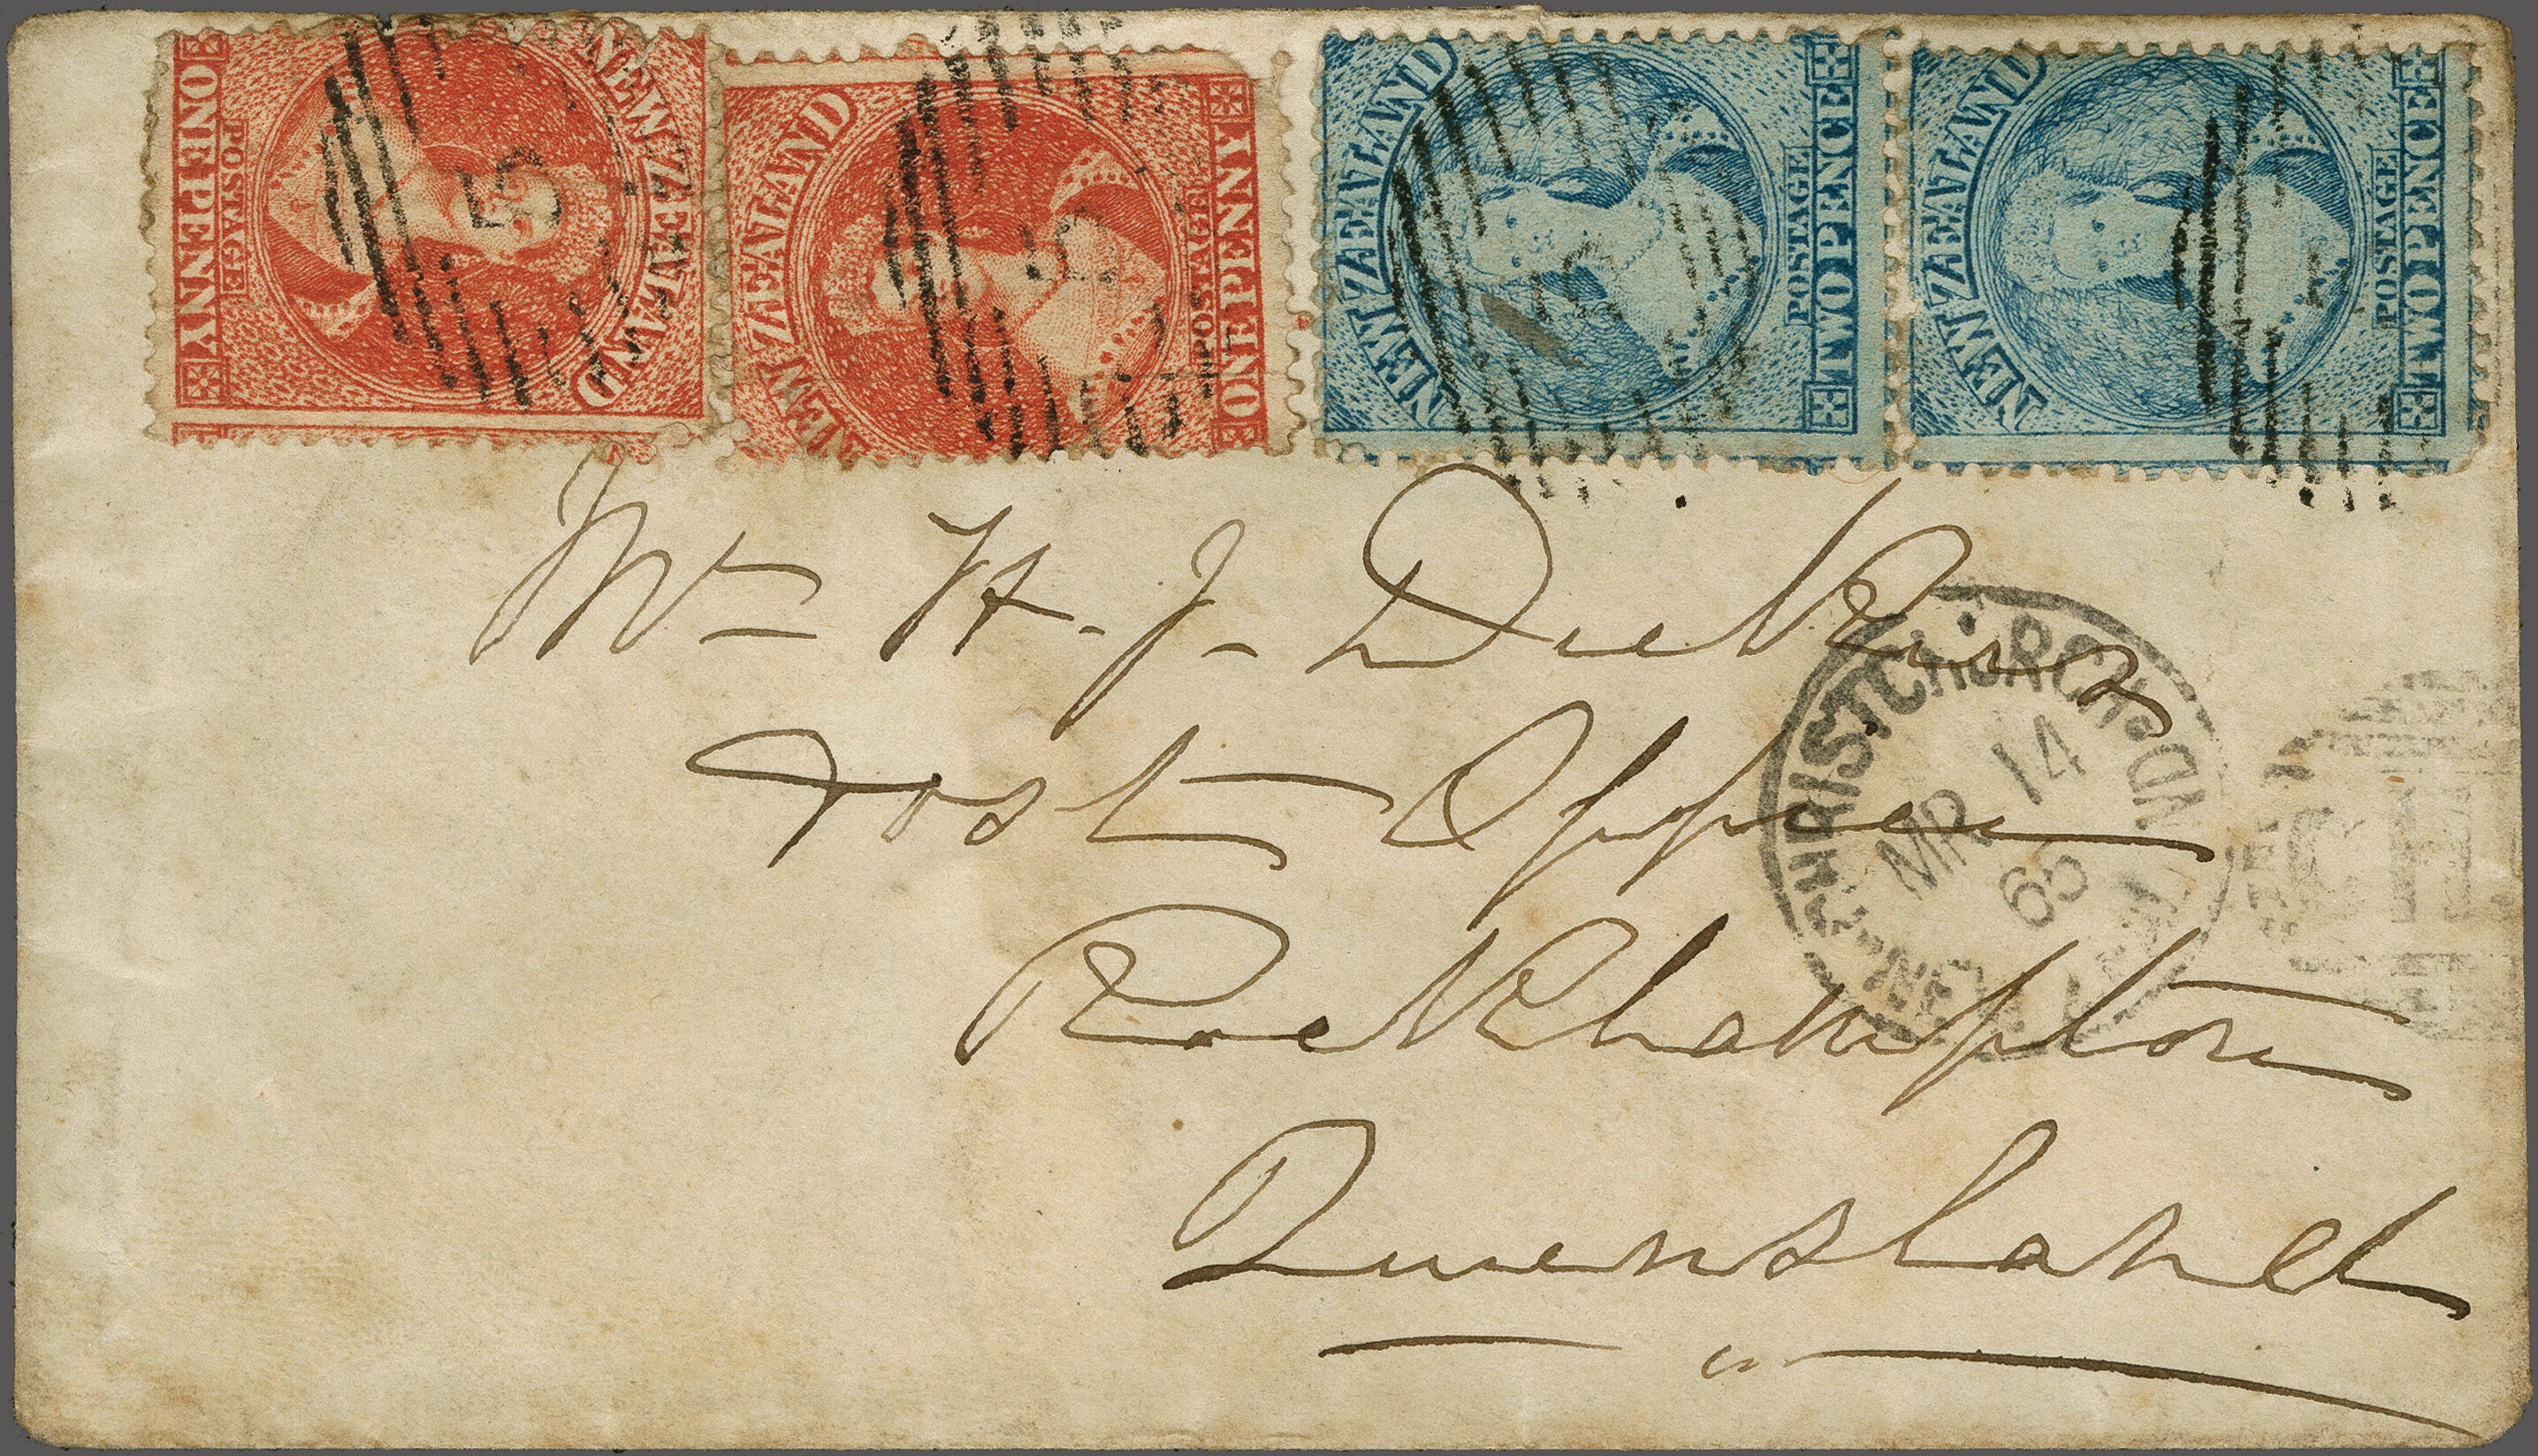 NEW ZEALAND
POSTAGE
ONE PENNY
5
NEW ZEALAND
POSTAGE
ONE PENNY
5
NEW ZEALAND
POSTAGE
TWO PENCE
5
NEW ZEALAND
POSTAGE
TWO PENCE
Mr H. J. Dickins
Post Office
Rockhampton
Queensland
CHRISTCHURCH
MR 14
65